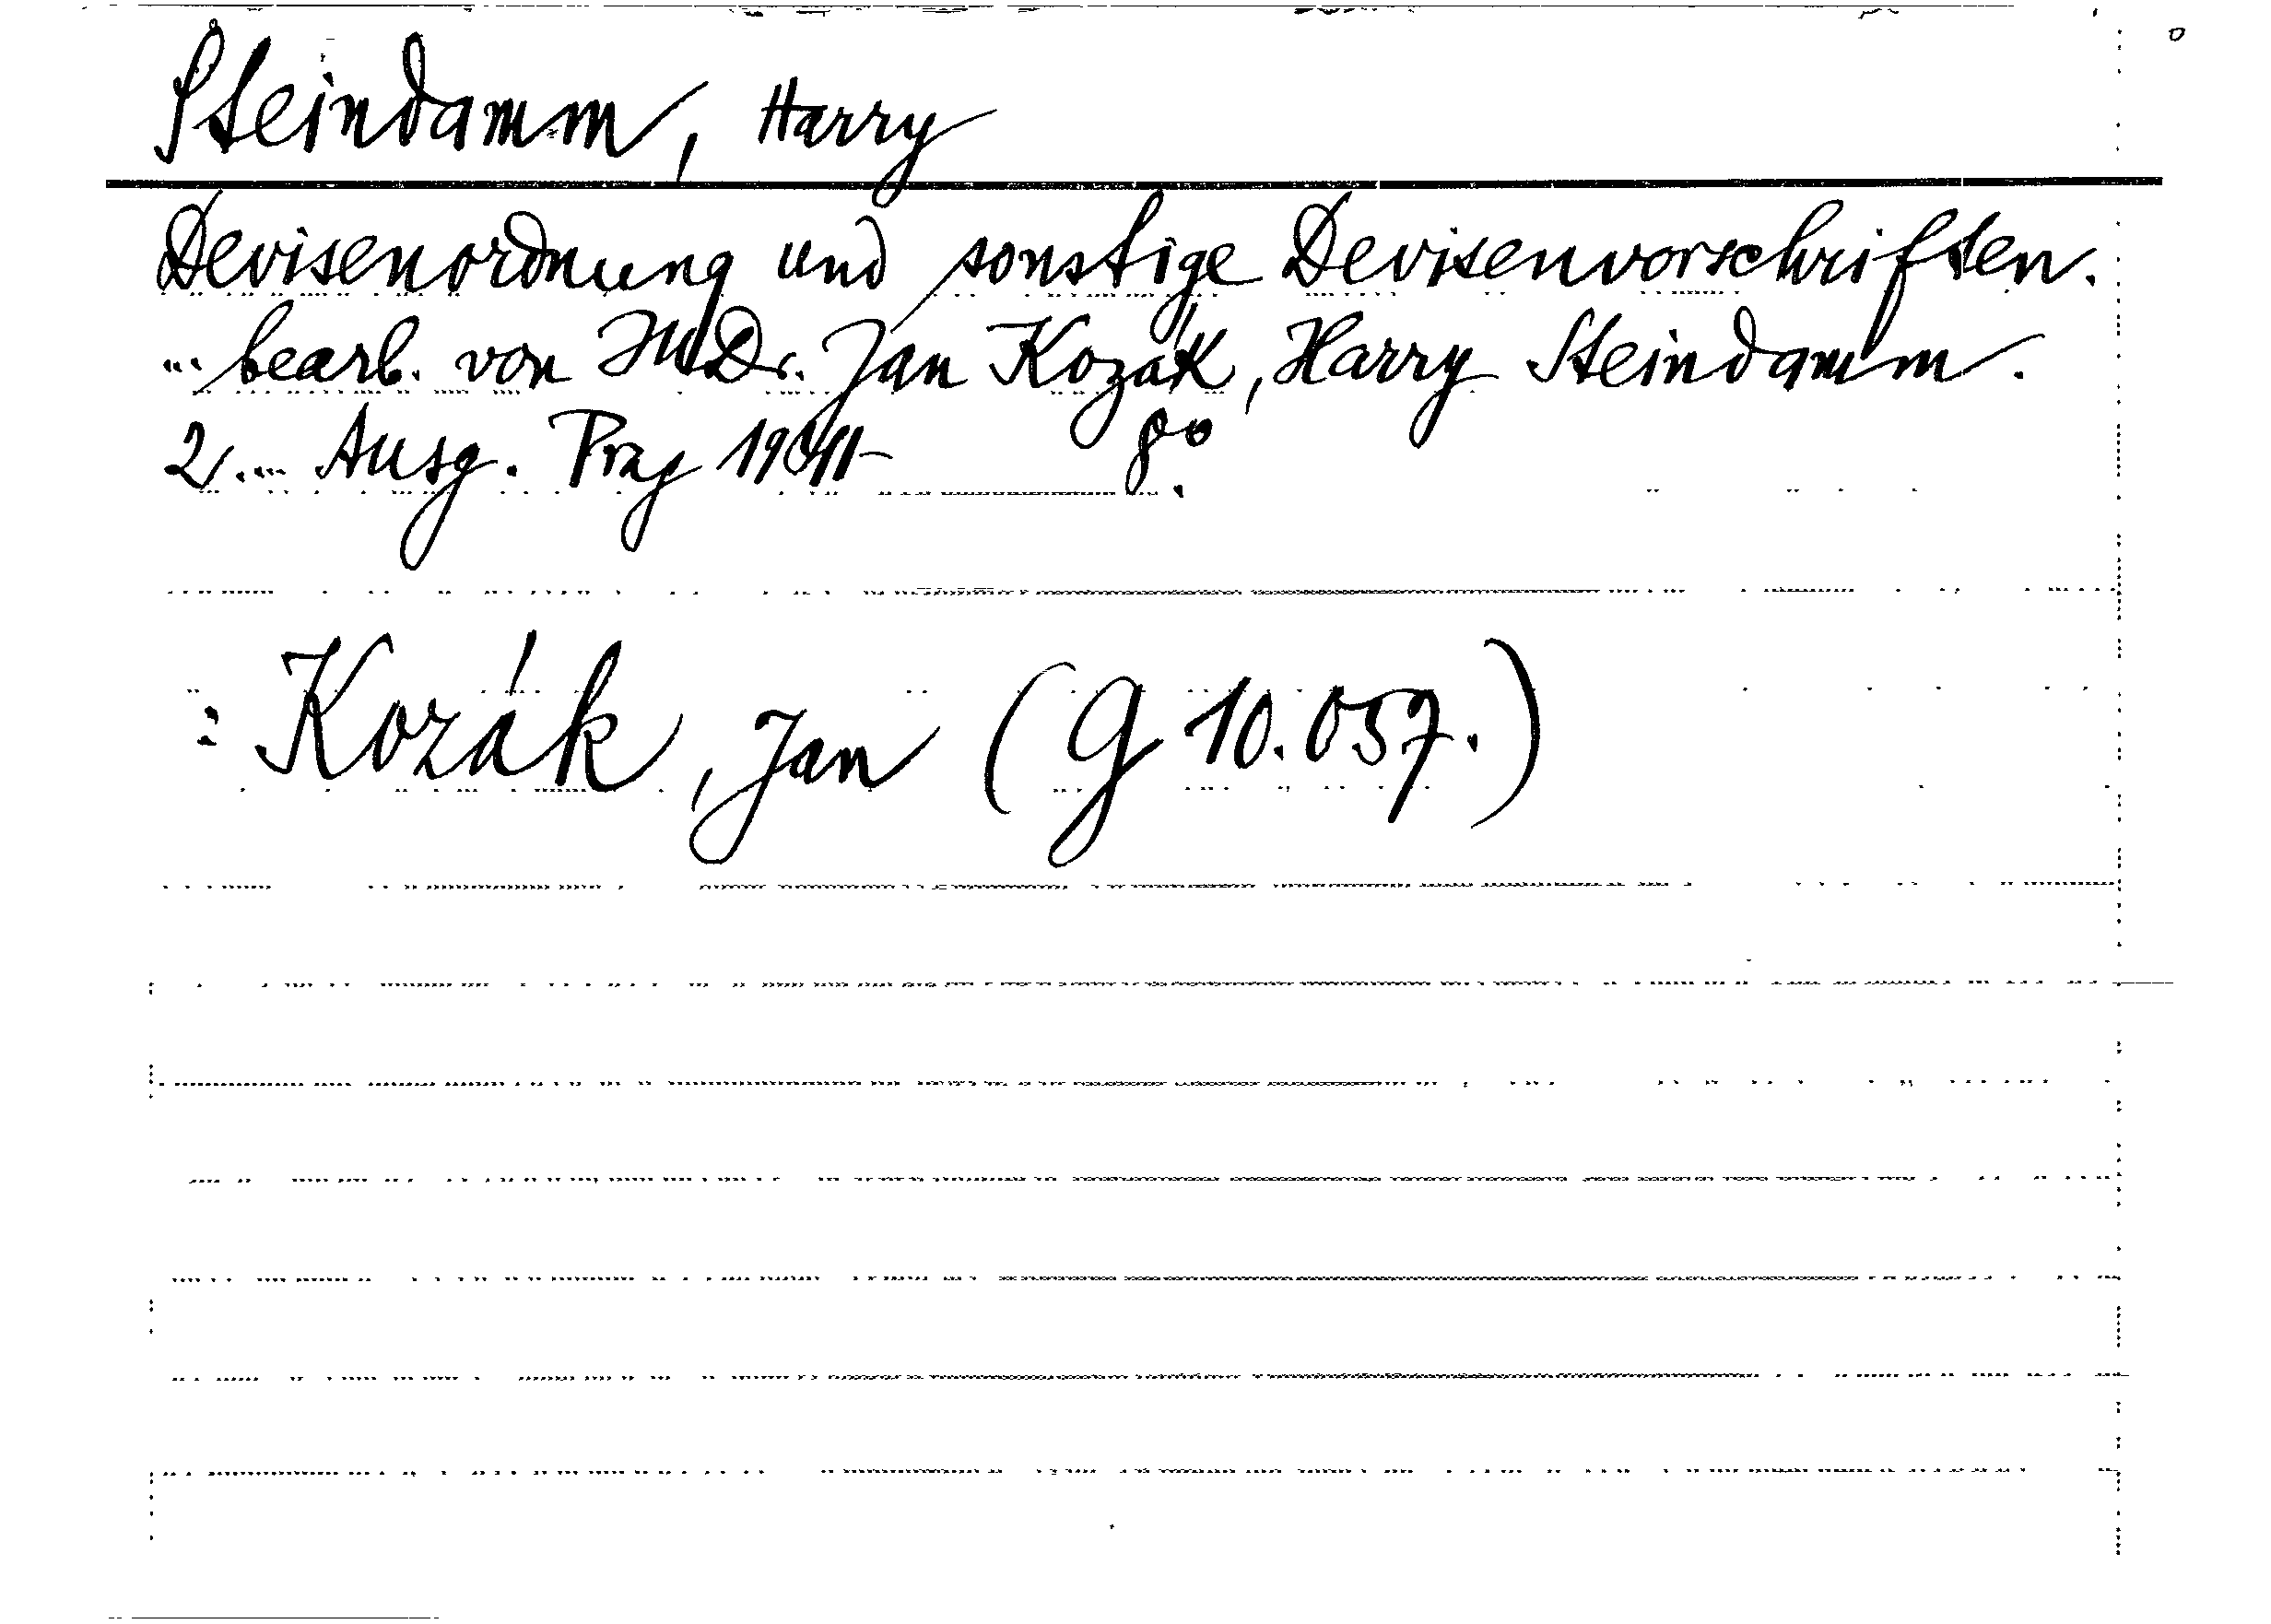 Steindamm, Harry
Devisenordnung und sonstige Devisenvorschriften.
... bearb. von JUDr. Jan Kozák, Harry Steindamm.
2.... Ausg. Prag 1941- 8°.
: Kozák, Jan (G 10.057.)